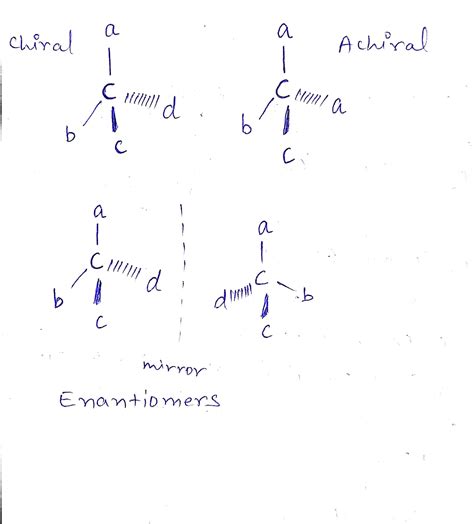 Chiral a a Achiral
C d C a
b b
c c
a a
C d d C b
b
c c
mirror
Enantiomers